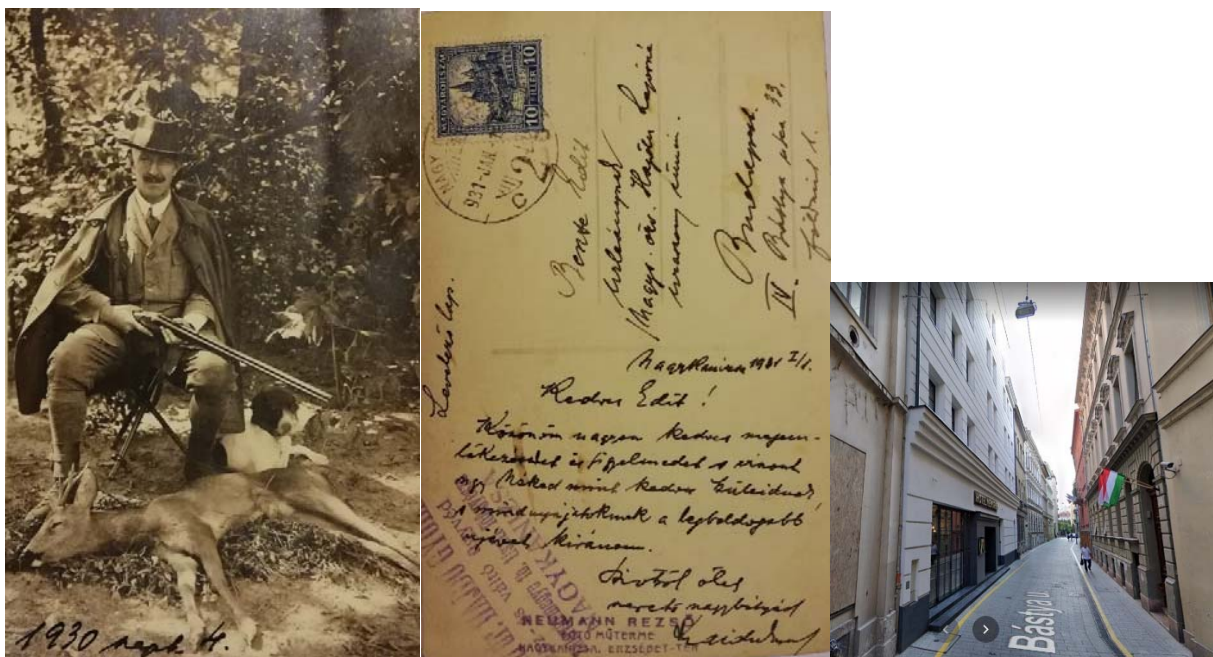 1930 sept. 4.
MAGYARORSZÁG
10 FILLÉR 10
NAGY
931 JAN
Levelező lap.
Bente Edit
úrleánynak
Budapest.
IV. Bástya utca 33.
földszint 1.
Nagykanizsa 1931 I/1.
Kedves Edit!
Köszönöm nagyon kedves megem-
lékezésedet és figyelmedet s viszont
úgy Néked mint kedves Szüleidnek
s mindnyájatoknak a legboldogabb
újévet kívánom.
Szivből ölel
szerető nagybátyád
NEUMANN REZSŐ
FOTÓ MŰTERME
NAGYKANIZSA, ERZSÉBET-TÉR
Bástya u.